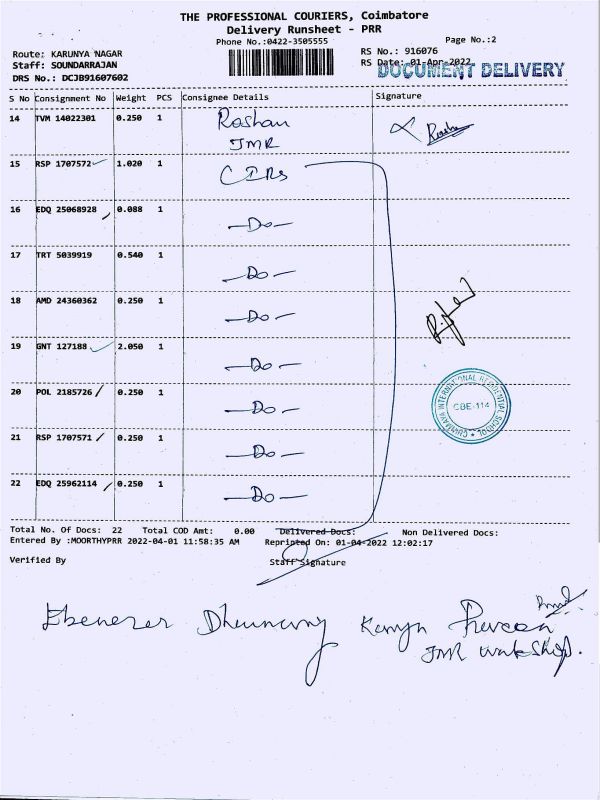 THE PROFESSIONAL COURIERS, Coimbatore
Delivery Runsheet - PRR
Phone No.:0422-3505555
Page No.:2
Route: KARUNYA NAGAR
RS No.: 916076
Staff: SOUNDARRAJAN
RS Date: 01-Apr-2022
DOCUMENT DELIVERY
DRS No.: DCJB91607602
S No Consignment No Weight PCS Consignee Details Signature
14 TVM 14022301 0.250 1 Roshan
JMR
15 RSP 1707572 1.020 1 CIRS
16 EDQ 25068928 0.088 1 -Do-
17 TRT 5039919 0.540 1 -Do-
18 AMD 24360362 0.250 1 -Do-
19 GNT 127188 2.050 1 -Do-
20 POL 2185726 0.250 1 -Do-
21 RSP 1707571 0.250 1 -Do-
22 EDQ 25962114 0.250 1 -Do-
CHINMAYA INTERNATIONAL RESIDENTIAL SCHOOL
CBE-114
Total No. Of Docs: 22 Total COD Amt: 0.00 Delivered Docs: Non Delivered Docs:
Entered By :MOORTHYPRR 2022-04-01 11:58:35 AM Reprinted On: 01-04-2022 12:02:17
Verified By Staff Signature
Ebenezer
JMR workshop.